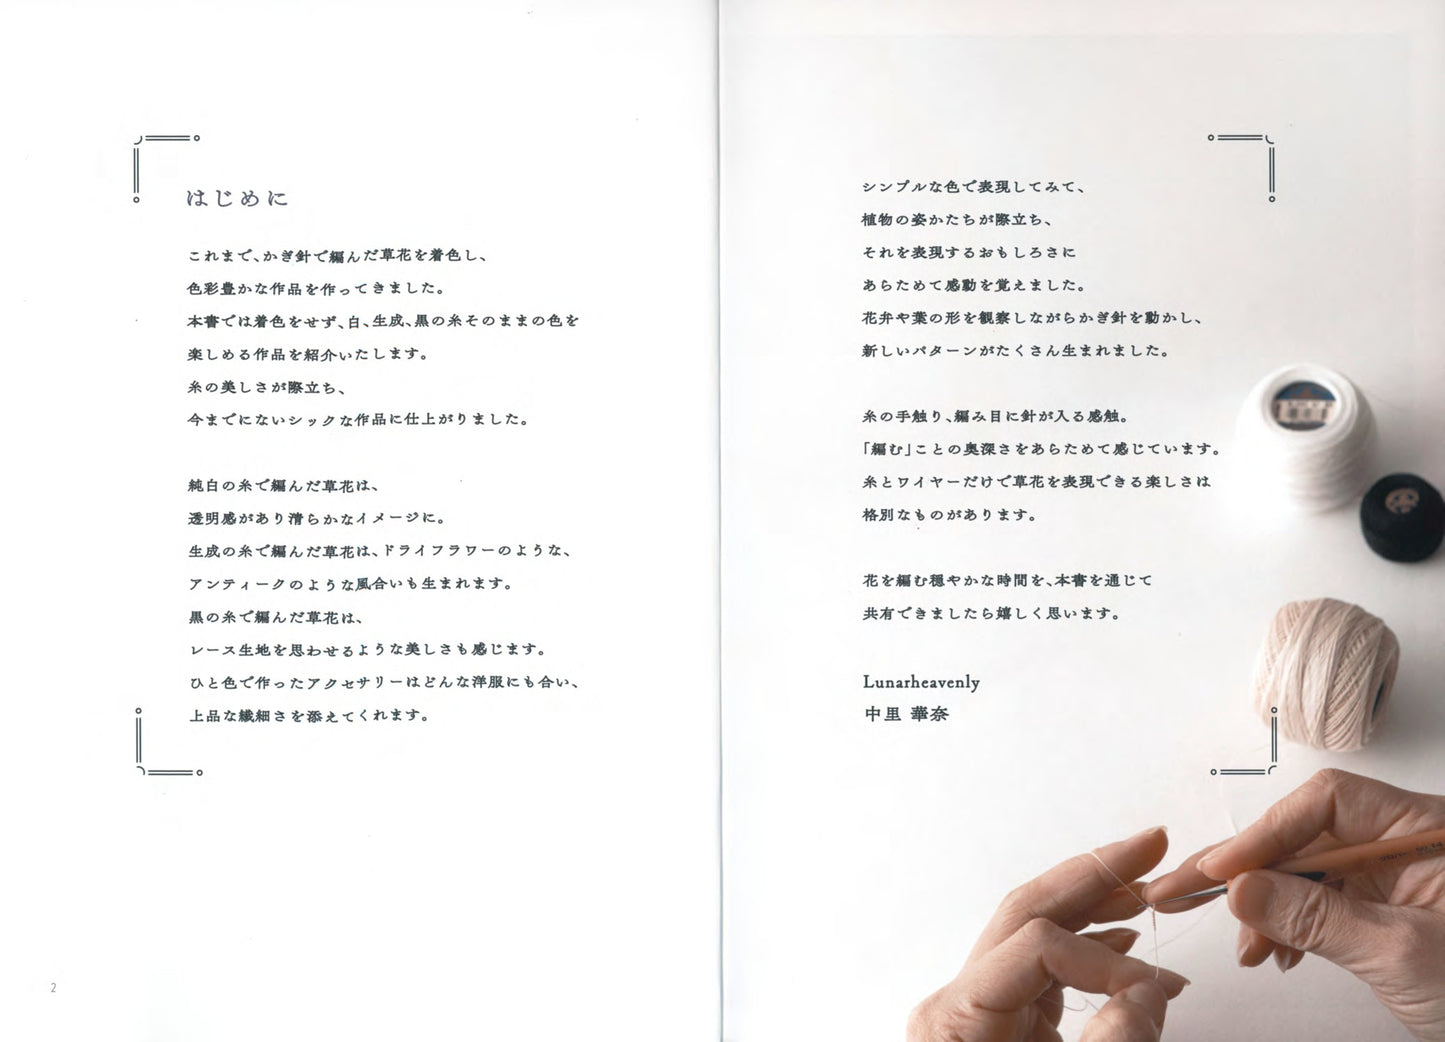 はじめに
これまで、かぎ針で編んだ草花を着色し、
色彩豊かな作品を作ってきました。
本書では着色をせず、白、生成、黒の糸そのままの色を
楽しめる作品を紹介いたします。
糸の美しさが際立ち、
今までにないシックな作品に仕上がりました。
純白の糸で編んだ草花は、
透明感があり清らかなイメージに。
生成の糸で編んだ草花は、ドライフラワーのような、
アンティークのような風合いも生まれます。
黒の糸で編んだ草花は、
レース生地を思わせるような美しさも感じます。
ひと色で作ったアクセサリーはどんな洋服にも合い、
上品な繊細さを添えてくれます。
2
シンプルな色で表現してみて、
植物の姿かたちが際立ち、
それを表現するおもしろさに
あらためて感動を覚えました。
花弁や葉の形を観察しながらかぎ針を動かし、
新しいパターンがたくさん生まれました。
糸の手触り、編み目に針が入る感触。
「編む」ことの奥深さをあらためて感じています。
糸とワイヤーだけで草花を表現できる楽しさは
格別なものがあります。
花を編む穏やかな時間を、本書を通じて
共有できましたら嬉しく思います。
Lunarheavenly
中里 華奈